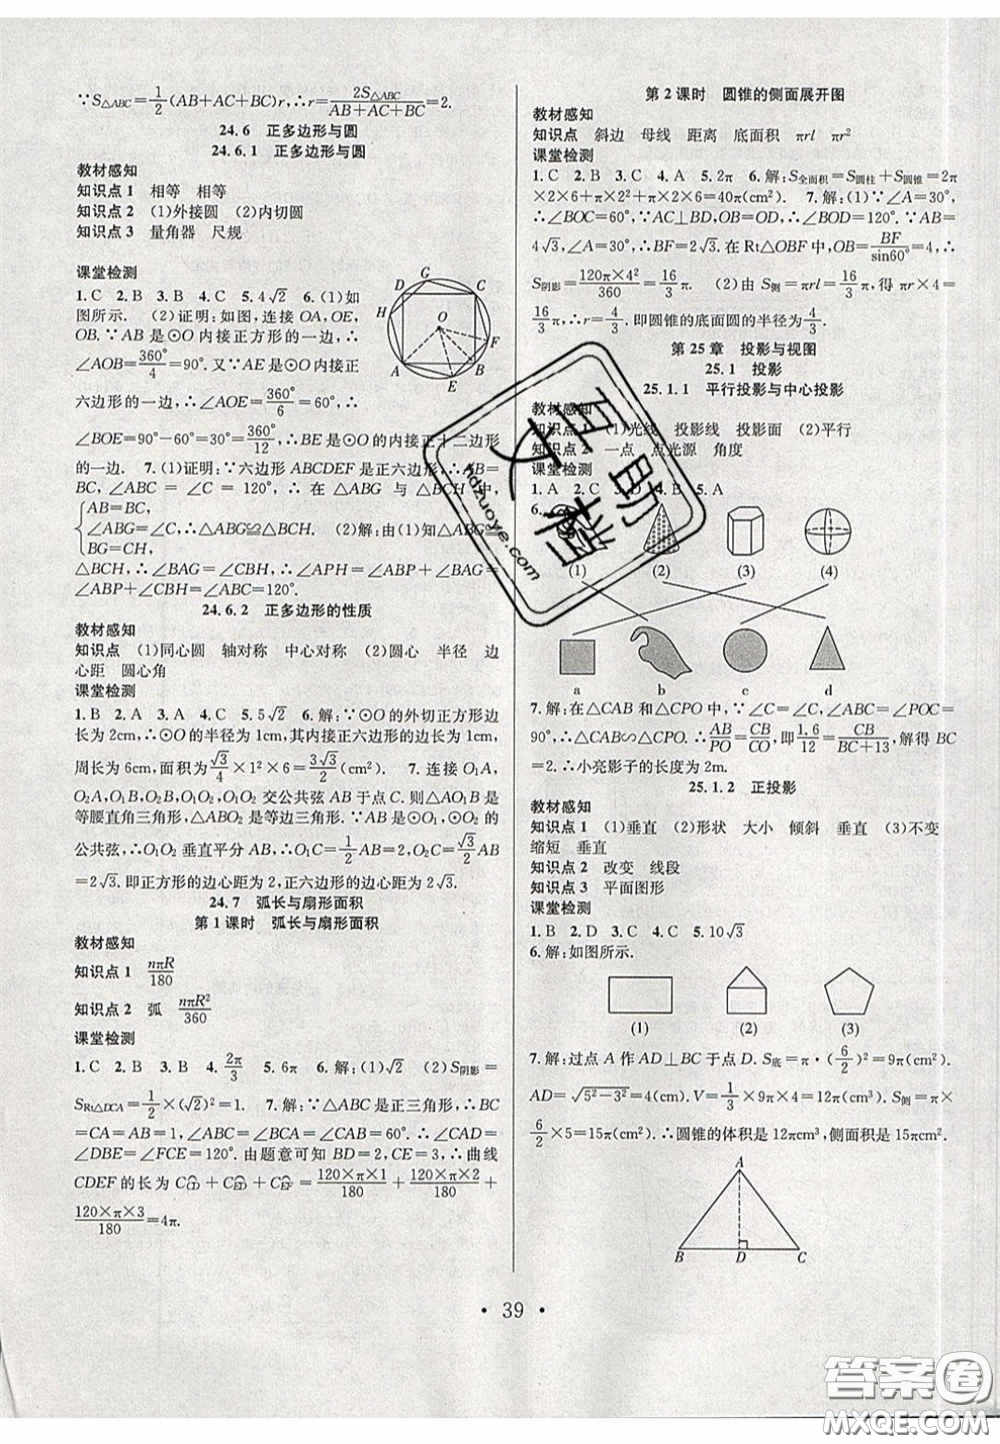 ∵S△ABC=1/2(AB+AC+BC)r,∴r=2S△ABC/(AB+AC+BC)=2.
24.6 正多边形与圆
24.6.1 正多边形与圆
教材感知
知识点1 相等 相等
知识点2 (1)外接圆 (2)内切圆
知识点3 量角器 尺规
课堂检测
1.C 2.B 3.B 4.C 5.4√2 6.(1)如
图所示. (2)证明:如图,连接OA,OE,
OB.∵AB是⊙O内接正方形的一边,
∴∠AOB=360°/4=90°.又∵AE是⊙O内接正
六边形的一边,∴∠AOE=360°/6=60°,∴
∠BOE=90°-60°=30°=360°/12,∴BE是⊙O的内接正十二边形
的一边. 7.(1)证明:∵六边形ABCDEF是正六边形,∴AB=
BC,∠ABC=∠C=120°,∴在△ABG与△BCH中,
AB=BC,
∠ABG=∠C,∴△ABG≌△BCH. (2)解:由(1)知△ABG≌
BG=CH,
△BCH,∴∠BAG=∠CBH,∴∠APH=∠APH+∠BAG=
∠ABP+∠CBH=∠ABC=120°,∴∠APH=120°.
24.6.2 正多边形的性质
教材感知
知识点 (1)同心圆 轴对称 中心对称 (2)圆心 半径 边
心距 圆心角
课堂检测
1.B 2.A 3.A 4.C 5.5√2 6.解:∵⊙O的外切正方形边
长为2cm,∴⊙O的半径为1cm,其内接正六边形的边长为1cm,
周长为6cm,面积为√3/4×1²×6=3√3/2(cm²). 7.连接O₁A,
O₂A,O₁B,O₂B,O₁O₂,O₁O₂交公共弦AB于点C.则△AO₁B是
等腰直角三角形,△ABO₂是等边三角形,∵AB是⊙O₁、⊙O₂的
公共弦,∴O₁O₂垂直平分AB,∴O₁C=1/2AB=2.O₂C=√3/2
AB=2√3.即正方形的边心距为2,正六边形的边心距为2√3.
24.7 弧长与扇形面积
第1课时 弧长与扇形面积
教材感知
知识点1 nπR/180
知识点2 弧 nπR²/360
课堂检测
1.C 2.B 3.B 4.2π/3 5.6π 6.解:(1)√2 (2)S阴影=
SRt△DCA=1/2×(√2)²=1. 7.解:∵△ABC是正三角形,∴BC
=CA=AB=1,∠ABC=∠BCA=∠CAB=60°.∴∠CAD=
∠DBE=∠FCE=120°.由题意可知BD=2,CE=3,∴曲线
CDEF的长为C⌒CD+C⌒ED+C⌒EF=120×π×1/180+120×π×2/180+
120×π×3/180=4π.
D G C H O F A B E
第2课时 圆锥的侧面展开图
教材感知
知识点 斜边 母线 距离 底面积 πrl πr²
课堂检测
1.C 2.B 3.B 4.A 5.2π 6.解:S全面积=S圆柱+S圆锥=2π
×2×6+π×2²+π×2×6=40π(cm²) 7.解:(1)∵∠A=30°,
∴∠BOC=60°,∵AC⊥BD,OB=OD,∴∠BOD=120°.∵AB=
4√3,∠A=30°,∴BF=2√3.在Rt△OBF中,OB=BF/sin60°=4,∴
S阴影=120π×4²/360=16/3π. (2)由S侧=πrl=16/3π,得πr×4=
16/3π,∴r=4/3.即圆锥的底面圆的半径为4/3.
第25章 投影与视图
25.1 投影
25.1.1 平行投影与中心投影
教材感知
知识点1 (1)光线 投影线 投影面 (2)平行
知识点2 一点 点光源 角度
课堂检测
1.A 2.C 3.D 4.B 5.A
6.
(1) (2) (3) (4)
a b c d
7.解:在△CAB和△CPO中,∵∠C=∠C,∠ABC=∠POC=
90°,∴△CAB∽△CPO.∴AB/PO=CB/CO,即1.6/12=CB/(BC+13),解得BC
=2.∴小亮影子的长度为2m.
25.1.2 正投影
教材感知
知识点1 (1)垂直 (2)形状 大小 倾斜 垂直 (3)不变
缩短 垂直
知识点2 改变 线段
知识点3 平面图形
课堂检测
1.B 2.D 3.C 4.C 5.10√3
6.解:如图所示.
(1) (2) (3)
7.解:过点A作AD⊥BC于点D.S底=π·(6/2)²=9π(cm²).
AD=√(5²-3²)=4(cm).V=1/3×9π×4=12π(cm³).S侧=π×
6/2×5=15π(cm²).∴圆锥的体积是12πcm³,侧面积是15πcm².
A
B D C
· 39 ·
互助文档
hdzuoye.com
答案圈
MXQE.COM